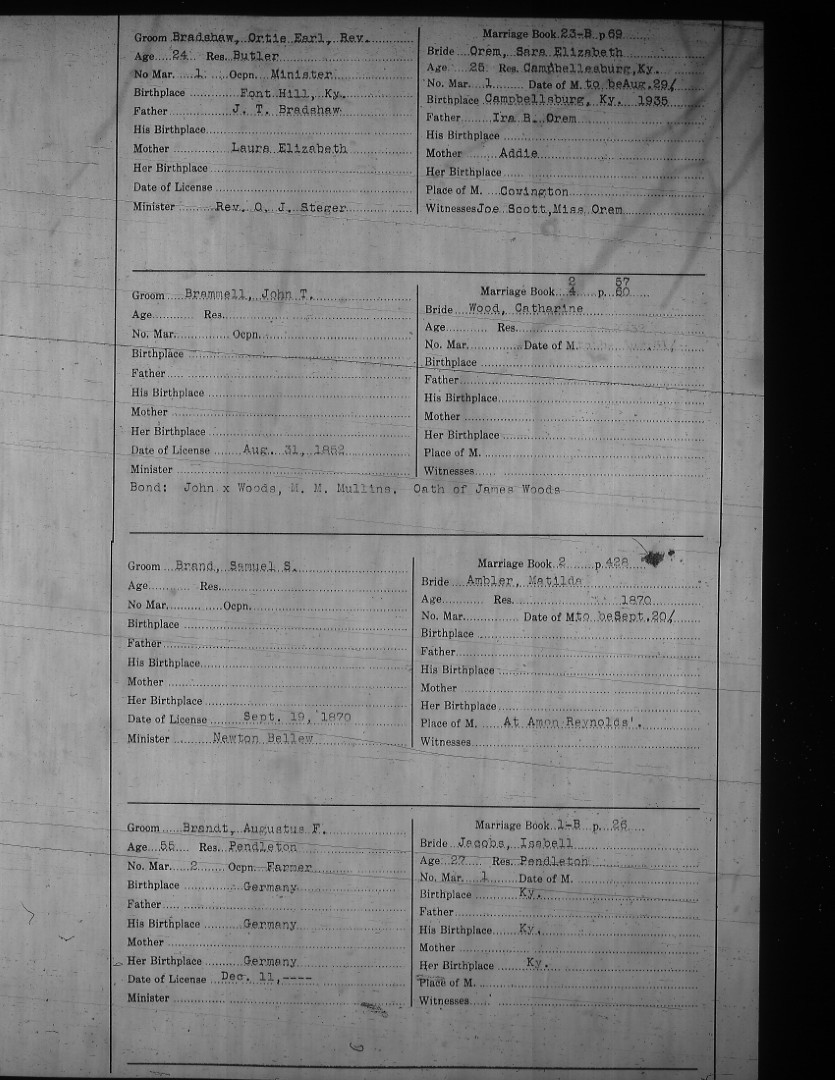 Groom Bradshaw, Ortie Earl, Rev.
Age 24 Res. Butler
No Mar. 1 Ocpn. Minister
Birthplace Font Hill, Ky.
Father J. T. Bradshaw
His Birthplace
Mother Laura Elizabeth
Her Birthplace
Date of License
Minister Rev. O. J. Steger
Marriage Book 23-B p 69
Bride Orem, Sara Elizabeth
Age 25 Res. Campbellsburg, Ky.
No. Mar. 1 Date of M. to be Aug. 29/
Birthplace Campbellsburg, Ky. 1935
Father Ira B. Orem
His Birthplace
Mother Addie
Her Birthplace
Place of M. Covington
Witnesses Joe Scott, Miss Orem
Groom Brammell, John T.
Age Res.
No. Mar. Ocpn.
Birthplace
Father
His Birthplace
Mother
Her Birthplace
Date of License Aug. 31, 1852
Minister
Bond: John x Woods, M. M. Mullins. Oath of James Woods
2 57
Marriage Book 4 p. 60
Bride Wood, Catharine
Age Res.
No. Mar. Date of M.
Birthplace
Father
His Birthplace
Mother
Her Birthplace
Place of M.
Witnesses
Groom Brand, Samuel S.
Age Res.
No Mar. Ocpn.
Birthplace
Father
His Birthplace
Mother
Her Birthplace
Date of License Sept. 19, 1870
Minister Newton Bellew
Marriage Book 2 p. 428
Bride Ambler, Matilda
Age Res. 1870
No. Mar. Date of M. to be Sept. 20/
Birthplace
Father
His Birthplace
Mother
Her Birthplace
Place of M. At Amon Reynolds'.
Witnesses
Groom Brandt, Augustus F.
Age 55 Res. Pendleton
No Mar. 2 Ocpn. Farmer
Birthplace Germany
Father
His Birthplace Germany
Mother
Her Birthplace Germany
Date of License Dec. 11,----
Minister
Marriage Book 1-B p. 26
Bride Jacobs, Isabell
Age 27 Res. Pendleton
No. Mar. 1 Date of M.
Birthplace Ky.
Father
His Birthplace Ky.
Mother
Her Birthplace Ky.
Place of M.
Witnesses